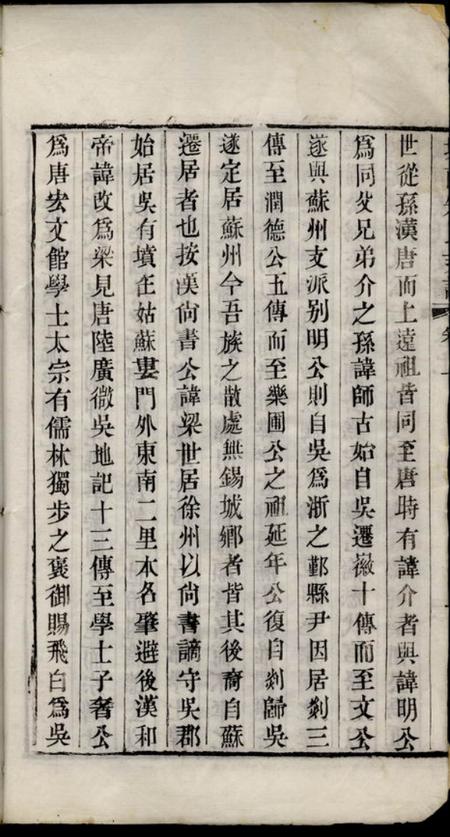 世從孫漢唐而上遠祖皆同至唐時有諱介者與諱明公
爲同父兄弟介之孫諱師古始自吳遷徽十傳而至文公
遂與蘇州支派别明公則自吳爲浙之鄞縣尹因居剡三
傳至潤德公五傳而至樂圃公之祖延年公復自剡歸吳
遂定居蘇州今吾族之散處無錫城鄉者皆其後裔自蘇
遷居者也按漢尙書公諱梁世居徐州以尙書謫守吳郡
始居吳有墳在姑蘇婁門外東南二里本名肇避後漢和
帝諱改爲梁見唐陸廣微吳地記十三傳至學士子奢公
爲唐宏文館學士太宗有儒林獨步之褒御賜飛白爲吳